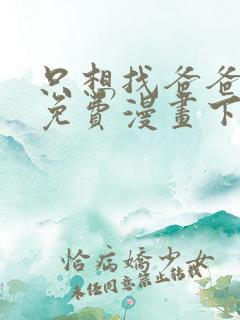 只想找爸爸
免費漫畫下
恰病嬌少女
未任同意禁止转载